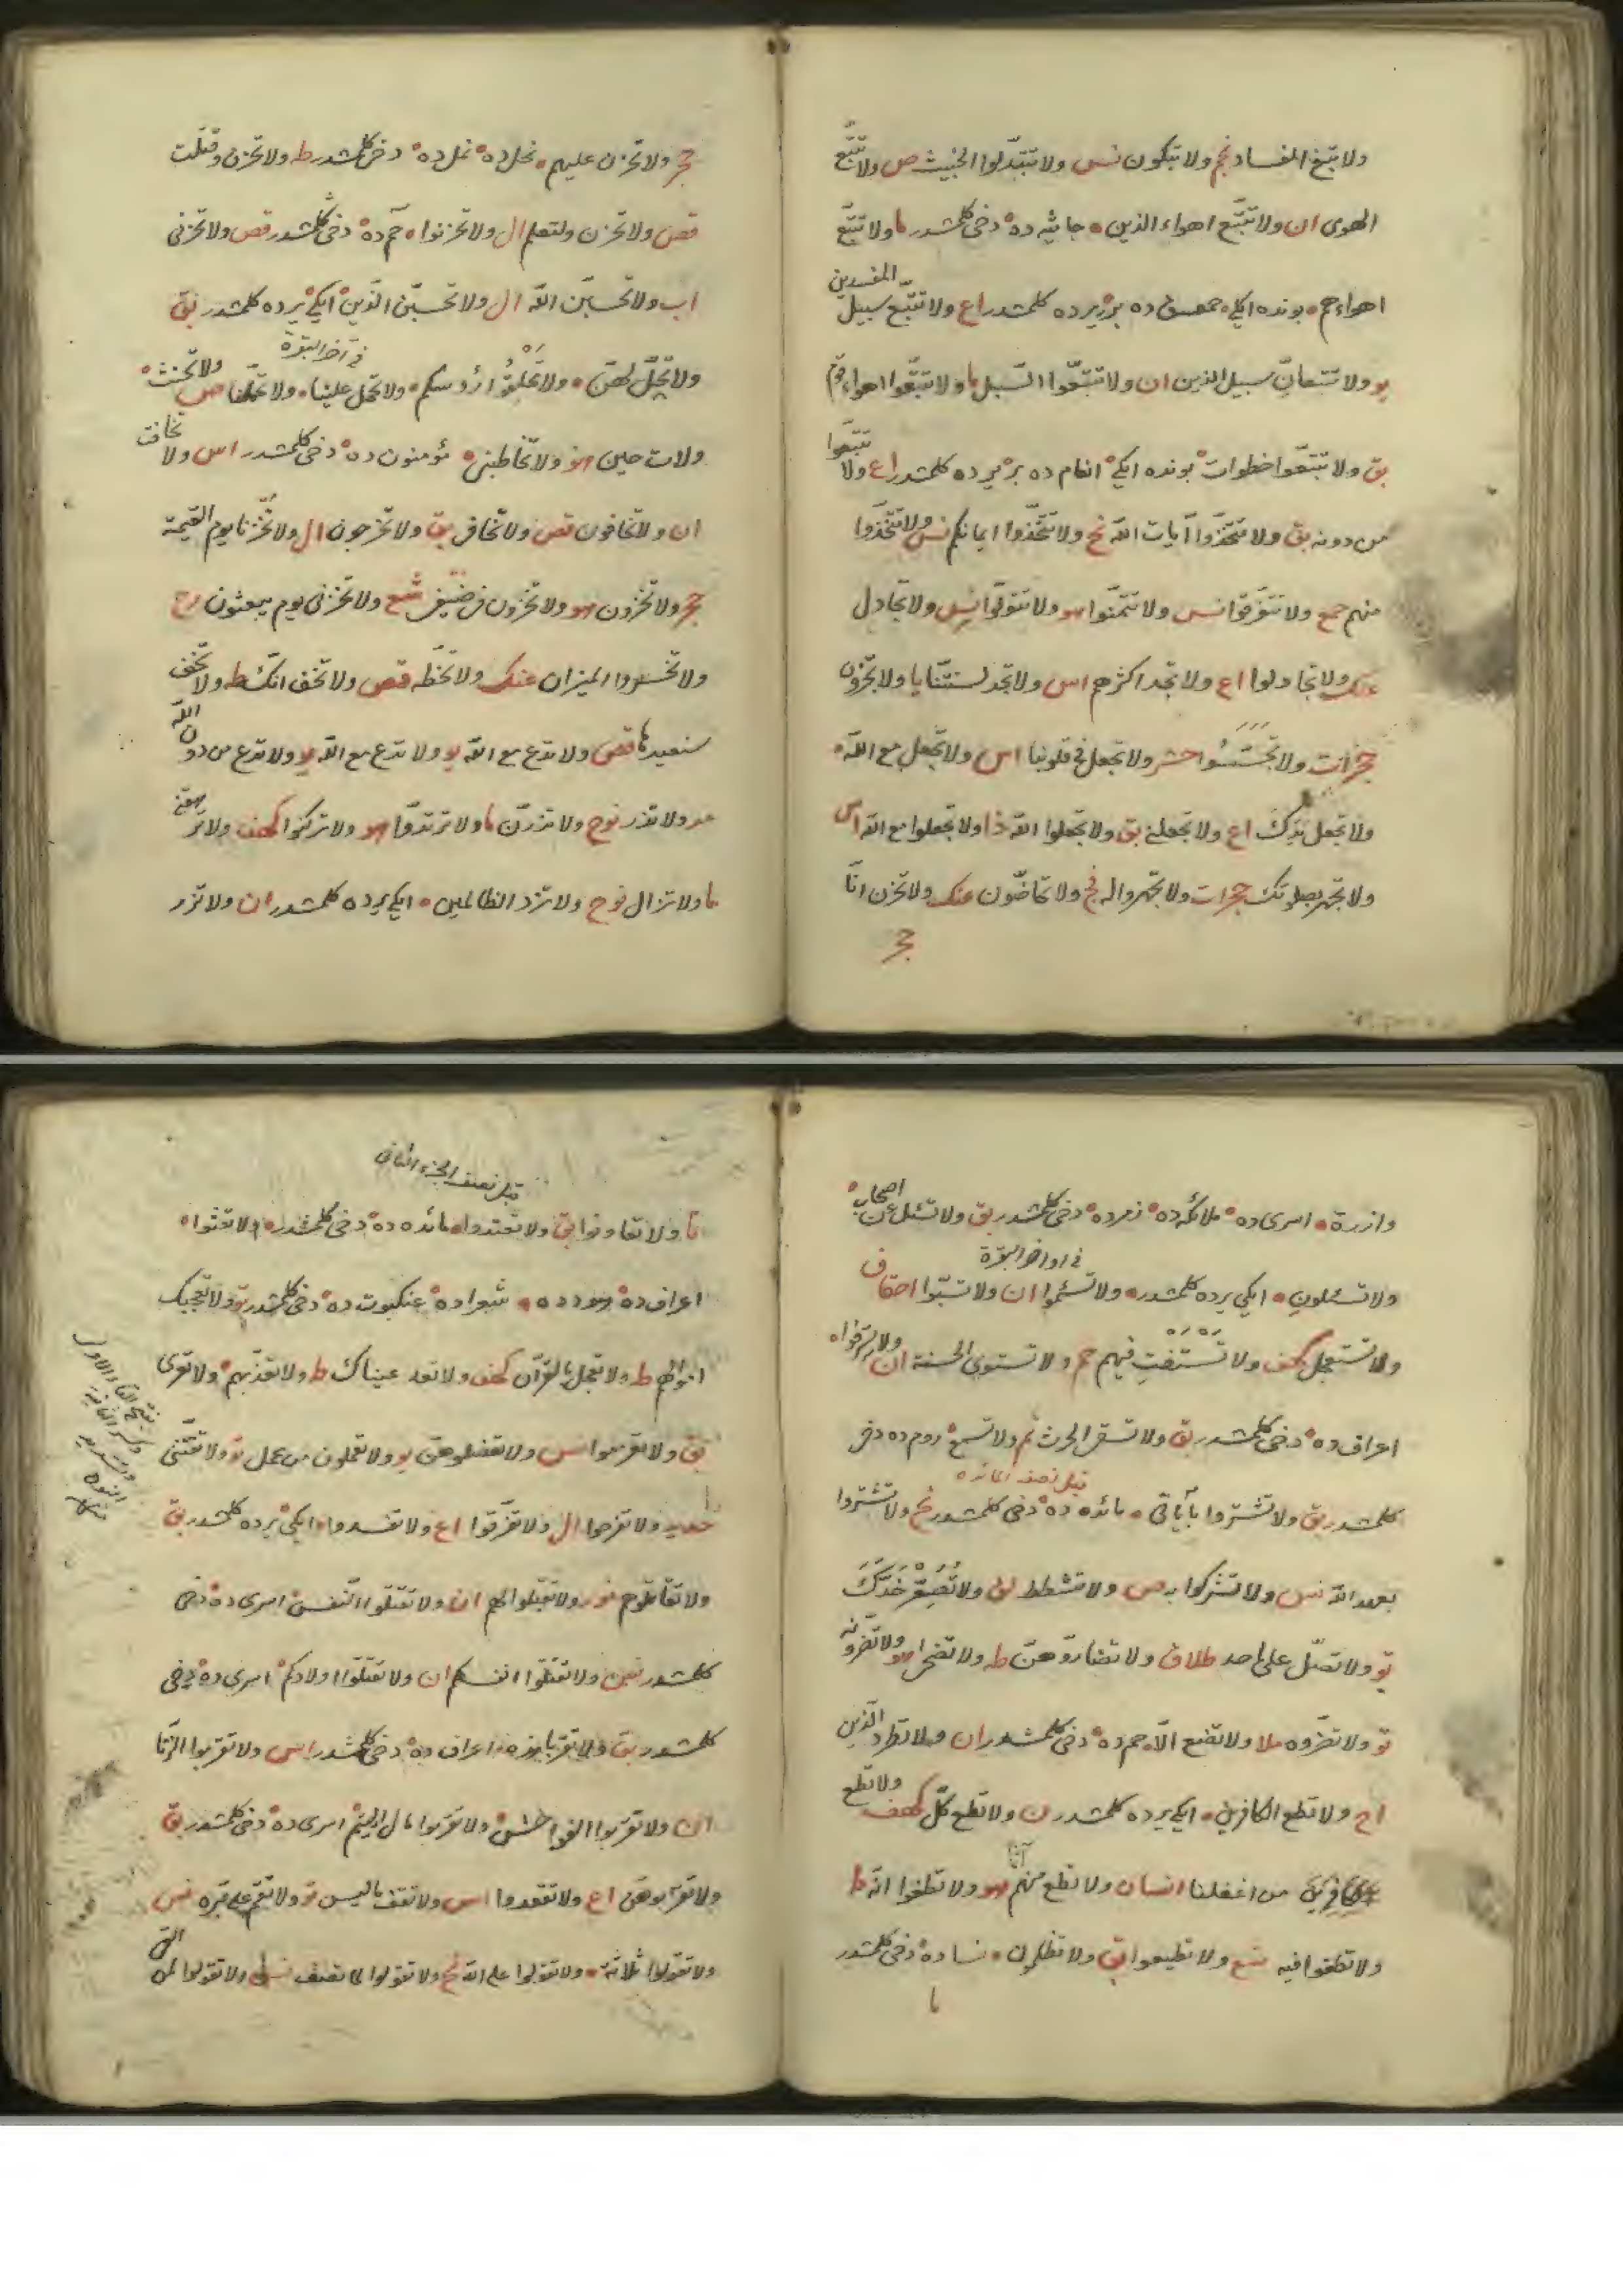 ولا تبغ الفساد نج ولا تبكون نس ولا تتبدلوا الخبيث ص ولا تتبع
الهوى ان ولا تتبع اهواء الذين ه جاثيه ده دخى كلمشدر ما ولا تتبع
المفسدين
اهواءهم ه بونده ايكى حمعسق ده بر يرده كلمشدر اع ولا تتبع سبيل
يو ولا تتبعان سبيل الذين ان ولا تتبعوا السبل ما ولا تتبعوا اهواء قوم
بق ولا تتبعوا خطوات بونده ايكى انعام ده بر يرده كلمشدر اع ولا تتبعوا
من دونه بق ولا تتخذوا آيات الله نح ولا تتخذوا ايمانكم نس ولا تتخذوا
منهم جمع ولا تتفرقوا نس ولا تتمنوا هو ولا تتولوا نس ولا تجادل
عنك ولا تجادلوا اع ولا تجد اكثرهم اس ولا تجد لسنتنا يا ولا تجزون
حجرات ولا تجسسوا حشر ولا تجعل فى قلوبنا اس ولا تجعل مع الله
ولا تجعل يدك اع ولا تجعلنى بق ولا تجعلوا الله ذا ولا تجعلوا مع الله اس
ولا تجهر بصلوتك حجرات ولا تجهروا له فج ولا تحاضون عنك ولا تحزن ان
حجر
حجر ولا تحزن عليهم ه نحل ده نمل ده دخى كلمشدر ط ولا تحزن وقتلت
قص ولا تحزن ولتعلم ال ولا تحزنوا ه حم ده دخى كلمشدر قص ولا تحزنى
اب ولا تحسبن الله ال ولا تحسبن الذين ايكى يرده كلمشدر بق
فى آخر البقرة
ولا تحل لهن ه ولا تحلقوا رؤسكم ه ولا تحمل علينا ه ولا تحملنا ص ولا تحنث
ولات حين هو ولا تخاطبنى ه مؤمنون ده دخى كلمشدر اس ولا تخافت
ان ولا تخافون قص ولا تخافى بق ولا تخرجون ال ولا تخزنا يوم القيمة
حجر ولا تخزون هو ولا تخزون فى ضيفى شع ولا تخزنى يوم يبعثون رح
ولا تخسروا الميزان عنك ولا تخطه قص ولا تخف انك ط ولا تخف
سنعيدها قص ولا تدع مع الله يو ولا تدع مع الله يو ولا تدع من دون الله
ولا تذر نوح ولا تذرن ما ولا ترتدوا هو ولا تركنوا كهف ولا ترهقنى
ما ولا تزال نوح ولا تزد الظالمين ه ايكى يرده كلمشدر ان ولا تزر
وازرة ه اسرى ده ملائكه ده زمر ده دخى كلمشدر بق ولا تسئل عن اصحاب
فى اواخر البقرة
ولا تسئلون ه ايكى يرده كلمشدر ه ولا تسئموا ان ولا تسبوا احقاف
ولا تستعجل كهف ولا تستفت فيهم حم ولا تستوى الحسنة ان ولا تسرفوا ه
اعراف ده دخى كلمشدر بق ولا تسقى الحرث نم ولا تسمع روم ده دخى
قبل نصف المائده
كلمشدر بق ولا تشتروا بآياتى ه مائده ده دخى كلمشدر نح ولا تشتروا
بعهد الله نس ولا تشركوا به ص ولا تشطط لق ولا تصعر خدك
تو ولا تصل على احد طلاق ولا تضاروهن ط ولا تضحى هو ولا تضرونه
تو ولا تضروه ملا ولا تضع الا حم ده دخى كلمشدر ان ولا تطرد الذين
اح ولا تطع الكافرين ه ايكى يرده كلمشدر ن ولا تطع كل كهف ولا تطع
من اغفلنا انسان ولا تطع منهم آثما هو ولا تطغوا انه ط
ولا تطغوا فيه شع ولا تطيعوا بق ولا تظلمون ه نسا ده دخى كلمشدر
ما
قبل نصف الجزء الثانى
ما ولا تعاونوا بق ولا تعتدوا ه مائده ده دخى كلمشدر ه ولا تعثوا ه
اعراف ده هود ده ه شعرا ده عنكبوت ده دخى كلمشدر تو ولا تعجبك
اموالهم ط ولا تعجل بالقرآن كهف ولا تعد عيناك ط ولا تعذبهم ولا تعرى
بق ولا تعزموا نس ولا تعضلوهن يو ولا تعملون من عمل تو ولا تفتنى
بفتح التاء الاولى
وكسر الثانية
وتشديد
النون
حديد ولا تفرحوا ال ولا تفرقوا اع ولا تفسدوا ه ايكى يرده كلمشدر بق
ولا تقاتلوهم نور ولا تقبلوا لهم ان ولا تقتلوا النفس اسرى ده دخى
كلمشدر نس ولا تقتلوا انفسكم ان ولا تقتلوا اولادكم اسرى ده دخى
كلمشدر بق ولا تقربا هذه اعراف ده دخى كلمشدر اس ولا تقربوا الزنا
ان ولا تقربوا الفواحش ولا تقربوا مال اليتيم اسرى ده دخى كلمشدر بق
ولا تقربوهن اع ولا تقعدوا اس ولا تقف ما ليس تو ولا تقم على قبره نس
ولا تقولوا ثلثة ه ولا تقولوا على الله نح ولا تقولوا لما تصف نس ولا تقولوا لمن القى